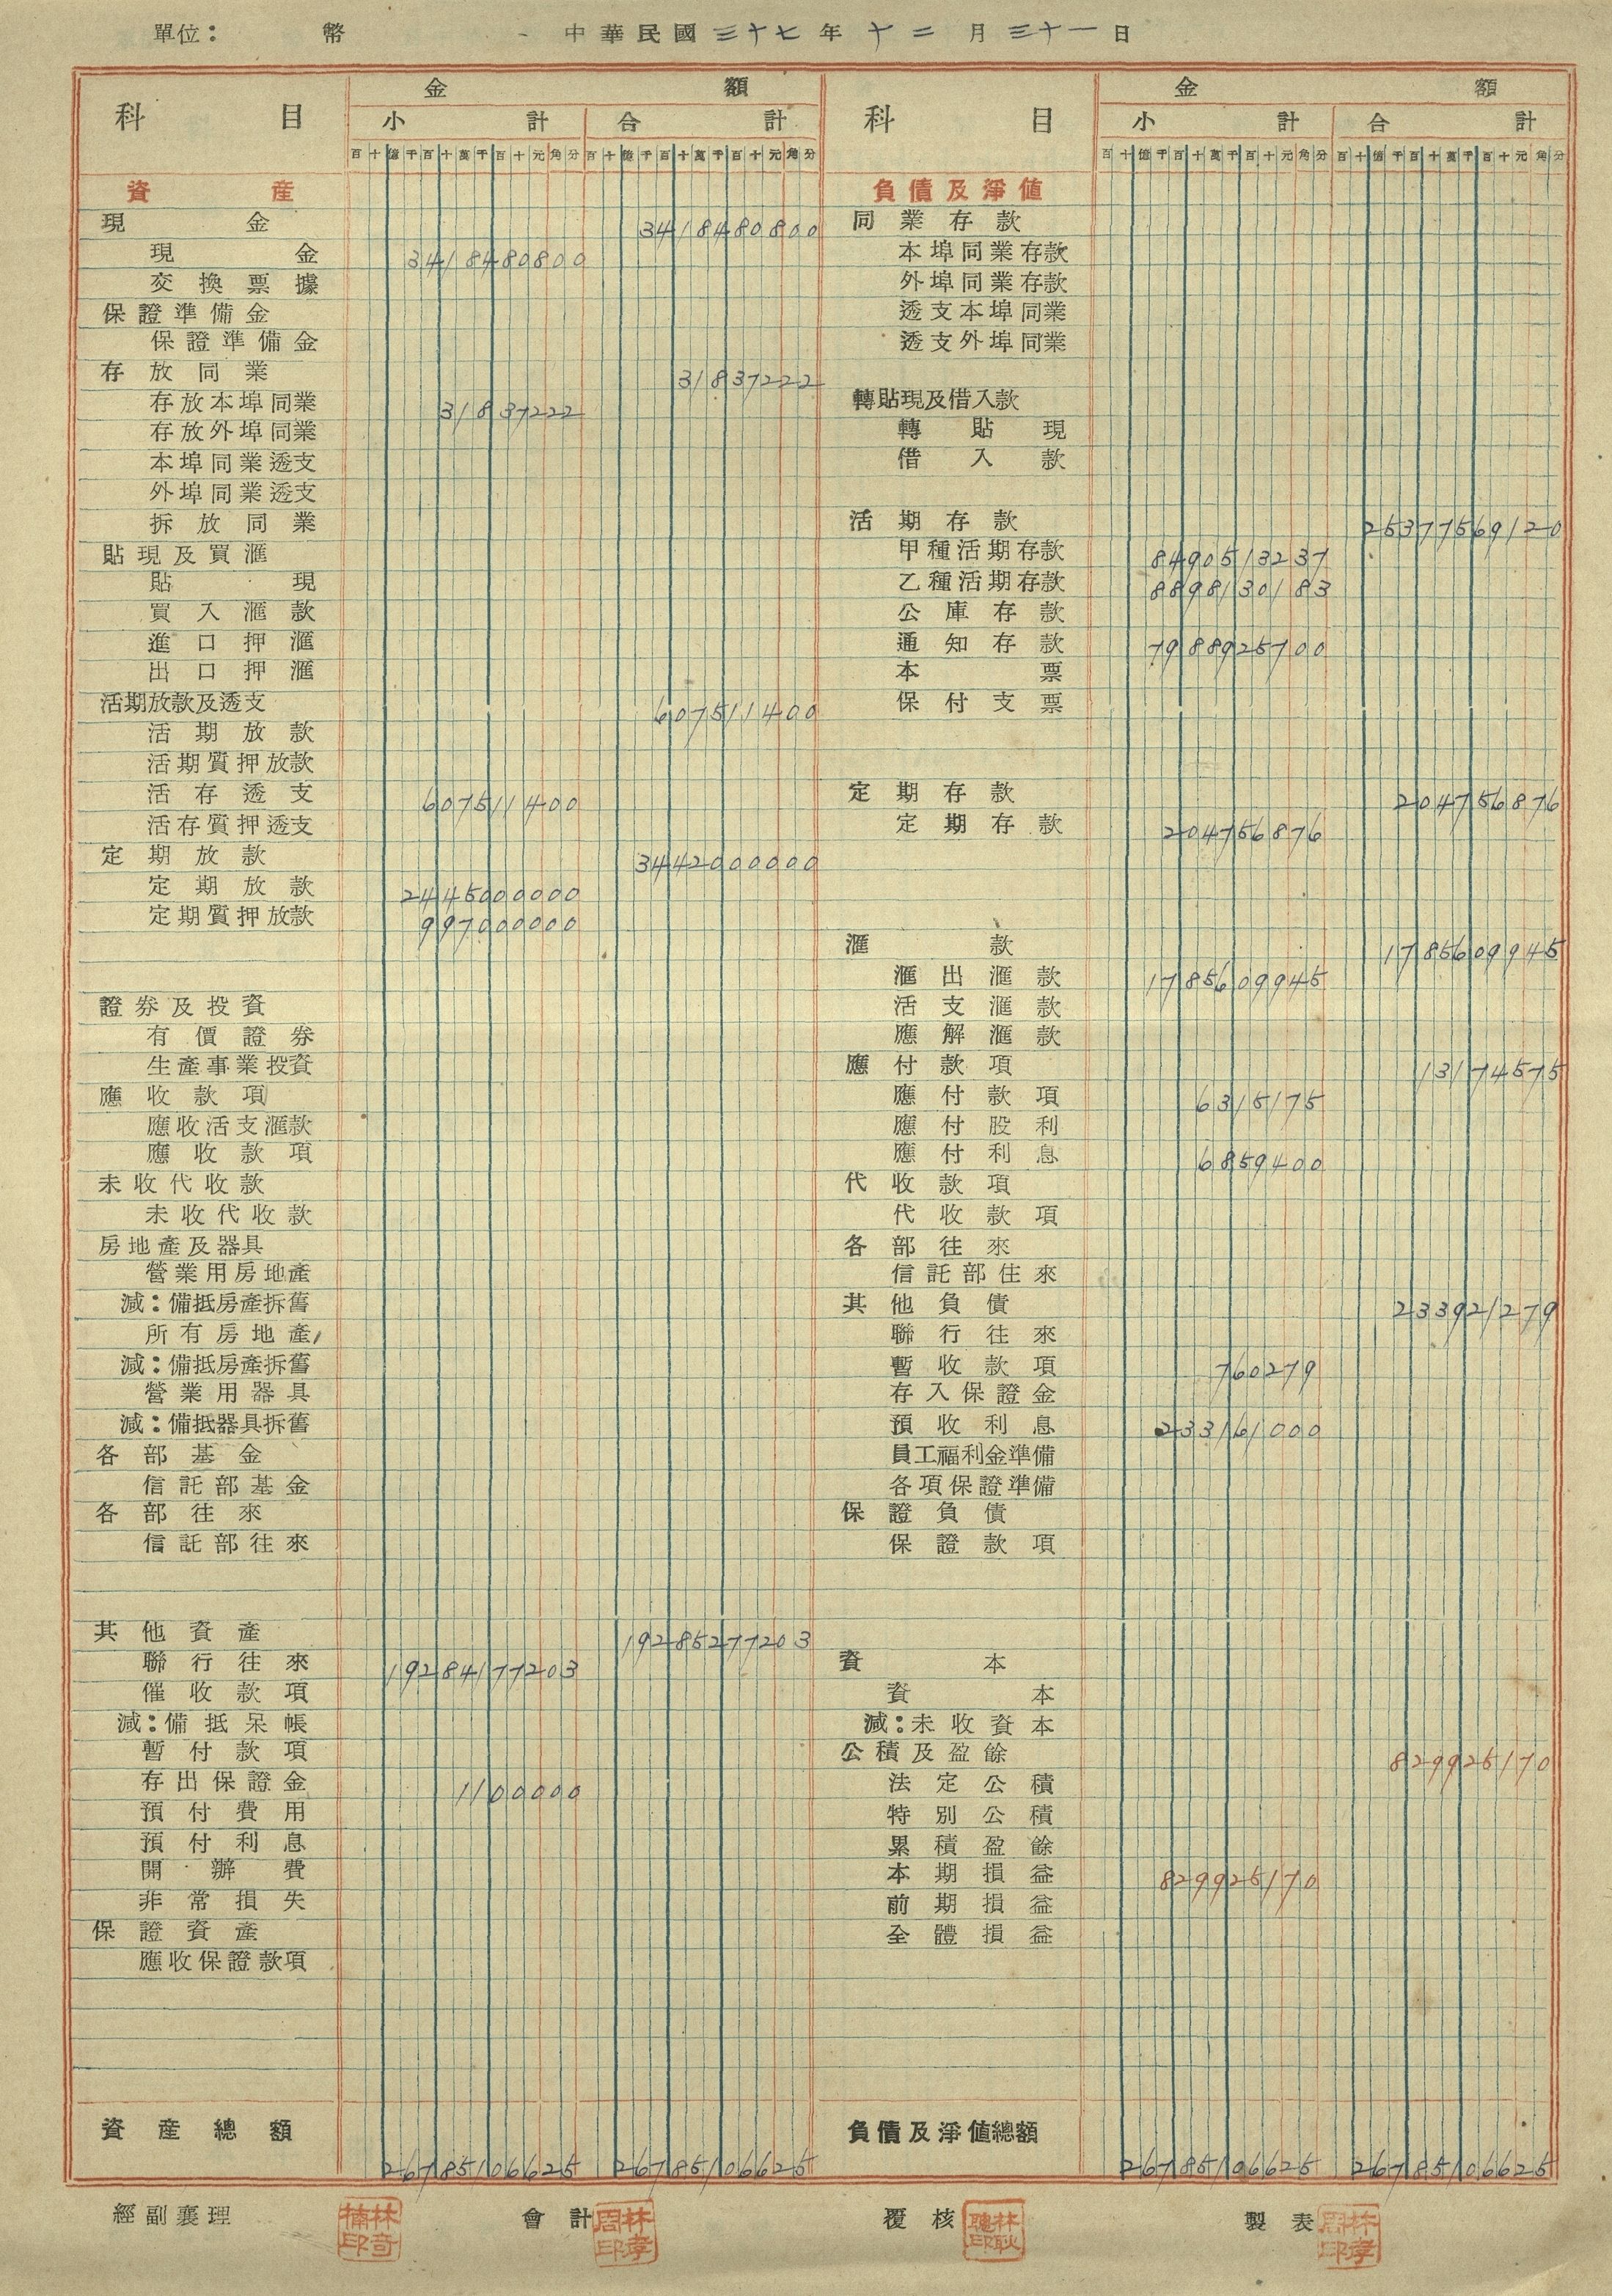 單位： 幣 中華民國三十七年十二月三十一日
科目 金額
小計 合計
百十億千百十萬千百十元角分 百十億千百十萬千百十元角分
資產
現金 3418480800
現金 3418480800
交換票據
保證準備金
保證準備金
存放同業 31837222
存放本埠同業 31837222
存放外埠同業
本埠同業透支
外埠同業透支
拆放同業
貼現及買滙
貼現
買入滙款
進口押滙
出口押滙
活期放款及透支 607511400
活期放款
活期質押放款
活存透支 607511400
活存質押透支
定期放款 3442000000
定期放款 2445000000
定期質押放款 997000000
證券及投資
有價證券
生產事業投資
應收款項
應收活支滙款
應收款項
未收代收款
未收代收款
房地產及器具
營業用房地產
減：備抵房產拆舊
所有房地產
減：備抵房產拆舊
營業用器具
減：備抵器具拆舊
各部基金
信託部基金
各部往來
信託部往來
其他資產 19285277203
聯行往來 19284177203
催收款項
減：備抵呆帳
暫付款項
存出保證金 1100000
預付費用
預付利息
開辦費
非常損失
保證資產
應收保證款項
資產總額 26785106625 26785106625
科目 金額
小計 合計
百十億千百十萬千百十元角分 百十億千百十萬千百十元角分
負債及淨值
同業存款
本埠同業存款
外埠同業存款
透支本埠同業
透支外埠同業
轉貼現及借入款
轉貼現
借入款
活期存款 25377569120
甲種活期存款 8490513237
乙種活期存款 8898130183
公庫存款
通知存款 7988925700
本票
保付支票
定期存款 204756876
定期存款 204756876
滙款 1785609945
滙出滙款 1785609945
活支滙款
應解滙款
應付款項 13174575
應付款項 6315175
應付股利
應付利息 6859400
代收款項
代收款項
各部往來
信託部往來
其他負債 233921279
聯行往來
暫收款項 760279
存入保證金
預收利息 233161000
員工福利金準備
各項保證準備
保證負債
保證款項
資本
資本
減：未收資本
公積及盈餘 829925170
法定公積
特別公積
累積盈餘
本期損益 829925170
前期損益
全體損益
負債及淨値總額 26785106625 26785106625
經副襄理 林奇楠印 會計 林孝周印 覆核 林耿聰印 製表 林孝周印